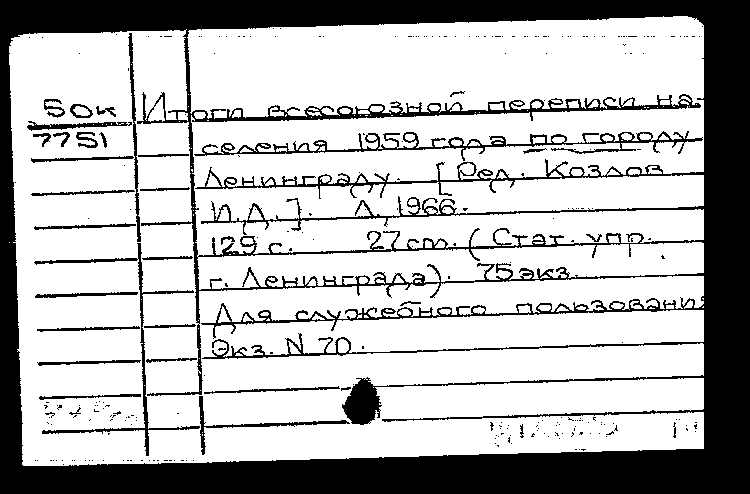 50к Итоги всесоюзной переписи на-
7751 селения 1959 года по городу
Ленинграду. [Ред. Козлов
И.Д.]. Л., 1966.
129 с. 27 cm. (Стат. упр.
г. Ленинграда). 75 экз.
Для служебного пользования
Экз. N 70.